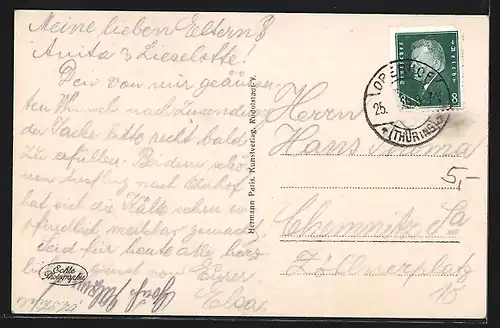 Meine lieben Eltern &
Anita & Lieselotte!
Den von mir geäußer-
ten Wunsch nach Zusendg
der Jacke bitte recht bald
zu erfüllen. Bei dem schö-
nen Ausflug nach
hat sich die Kälte sehr em-
pfindlich merkbar gemacht.
Seid für heute alle herz-
lich von Eurer
Elsa
Echte
Photographie
Hermann Paris, Kunstverlag, Rudolstadt-V.
DEUTSCHES REICH
8 8
25.
(THÜRING.)
Herrn
Hans
5,-
Chemnitz Sa
Zöllnerplatz
10